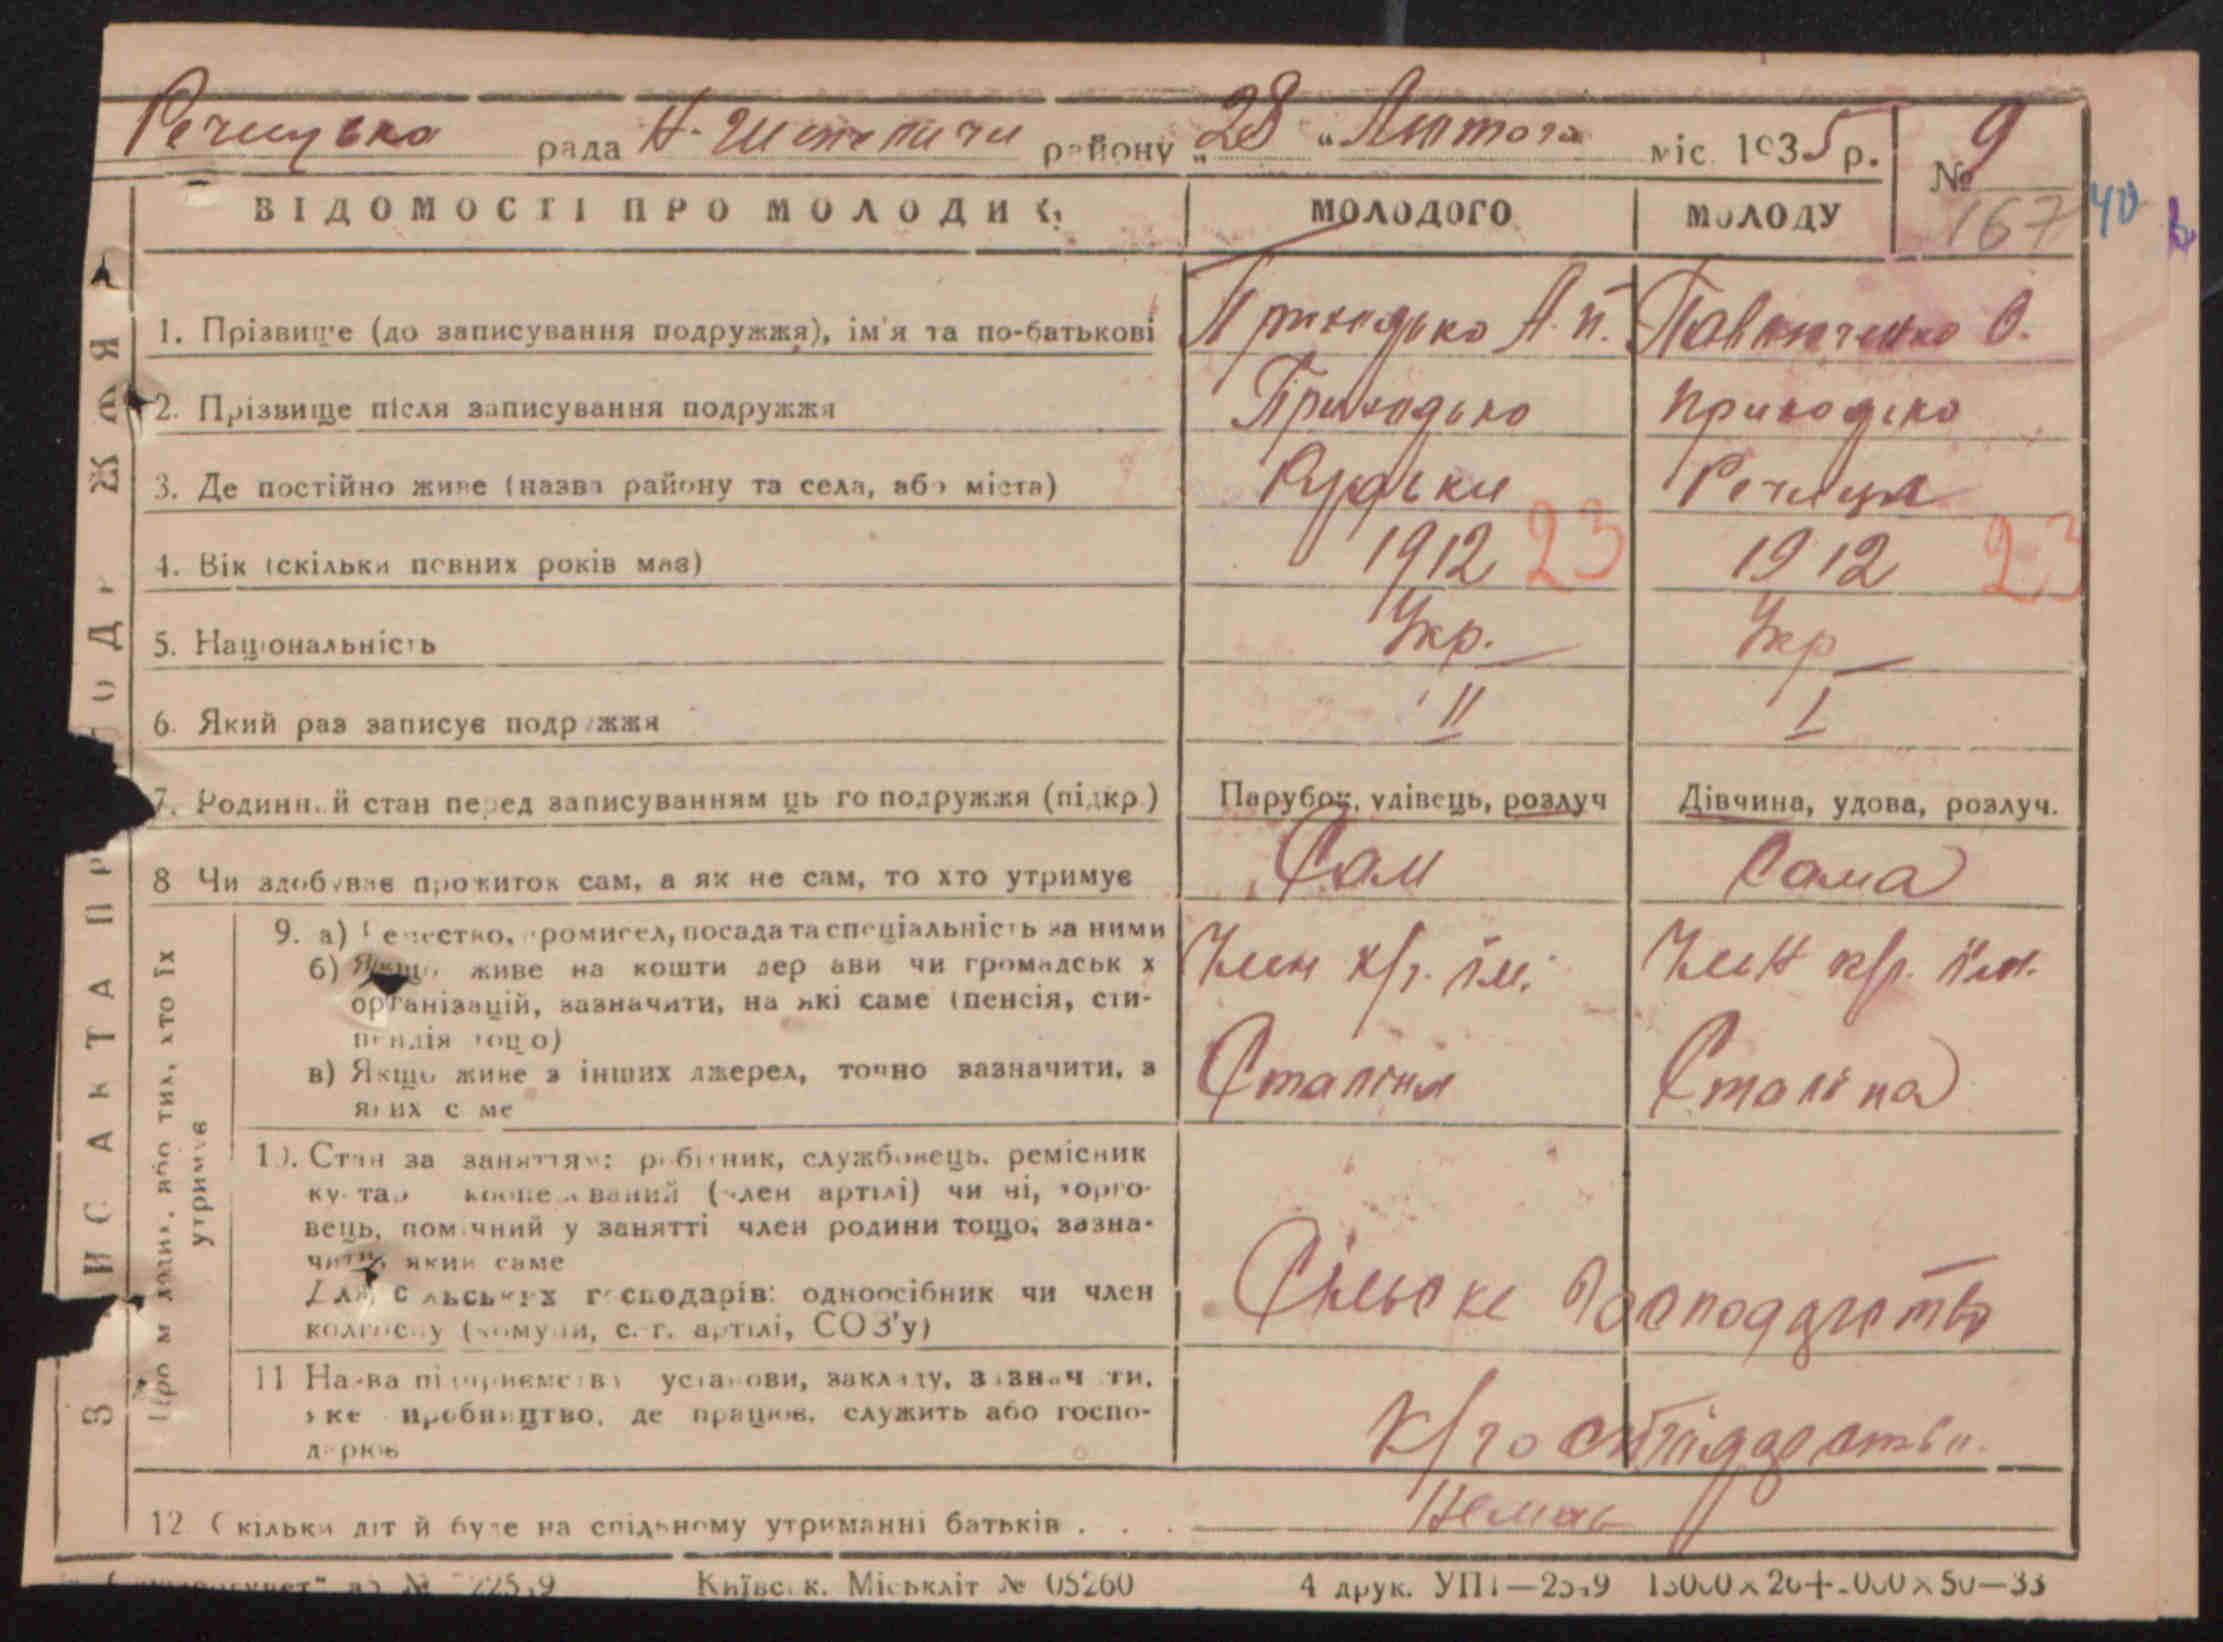 Речицька рада Н-Шепеличи району „28“ Лютого міс. 1935 р. № 9
167 40
ВІДОМОСТІ ПРО МОЛОДИХ МОЛОДОГО МОЛОДУ
1. Прізвище (до записування подружжя), ім'я та по-батькові Приходько А. П. О.
2. Прізвище після записування подружжя Приходько Приходько
3. Де постійно живе (назва району та села, або міста) Рудьки Речиця
4. Вік (скільки повних років має) 1912 23 1912 23
5. Національність Укр. Укр
6. Який раз записує подружжя II I
7. Родинний стан перед записуванням цього подружжя (підкр.) Парубок, удівець, розлуч Дівчина, удова, розлуч.
8 Чи здобуває прожиток сам, а як не сам, то хто утримує Сам Сама
9. а) промисел, посада та спеціальність за ними Член к/г. ім. Член к/г. ім.
б) Якщо живе на кошти держави чи громадських
організацій, зазначити, на які саме (пенсія, сти-
пендія тощо) Сталіна Сталіна
в) Якщо живе з інших джерел, точно зазначити, з
яких саме
10. Стан за заняттям: робітник, службовець, ремісник
кустар кооперований (член артілі) чи ні, торго-
вець, помічний у занятті член родини тощо, зазна-
чити, який саме
Для сільських господарів: одноосібник чи член Сільске Господарство
колгоспу (комуни, с.-г. артілі, СОЗ'у)
11 Назва підприємства установи, закладу, зазначити,
яке виробництво, де працює, служить або госпо-
дарює К/господарство
12 Скільки дітей буде на спільному утриманні батьків . . . Немає
ЗАПИС АКТА ПРО ПОДРУЖЖЯ
Про молодих, або тих, хто їх
утримує
Київськ. Міськліт № 05260 4 друк. УПП